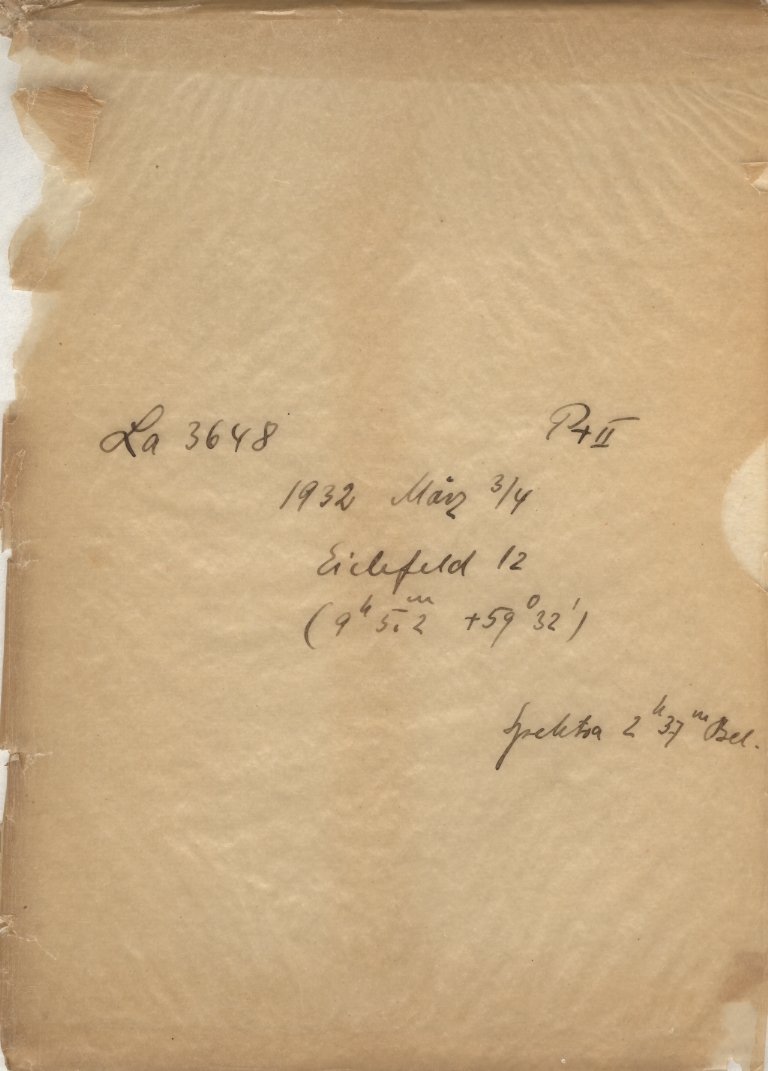 La 3648 P+II
1932 März 3/4
Eichfeld 12
(9ʰ 5.ᵐ2 +59° 32')
Spektra 2ʰ 37ᵐ Bel.